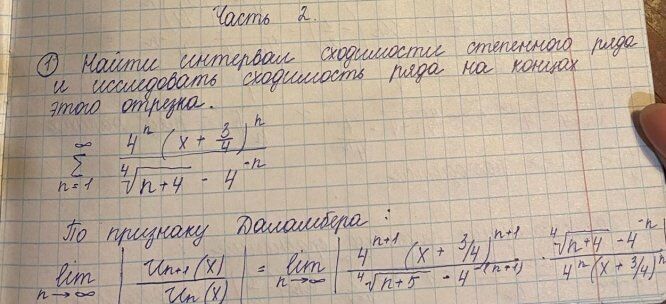 Часть 2.
① Найти интервал сходимости степенного ряда
и исследовать сходимость ряда на концах
этого отрезка.
∞
∑ 4ⁿ (x + 3/4)ⁿ / (⁴√(n+4) - 4⁻ⁿ)
n=1
По признаку Даламбера :
lim n→∞ | Uₙ₊₁(x) / Uₙ(x) | = lim n→∞ | 4ⁿ⁺¹ (x + 3/4)ⁿ⁺¹ / (⁴√(n+5) - 4⁻⁽ⁿ⁺¹⁾) · (⁴√(n+4) - 4⁻ⁿ) / (4ⁿ(x + 3/4)ⁿ)